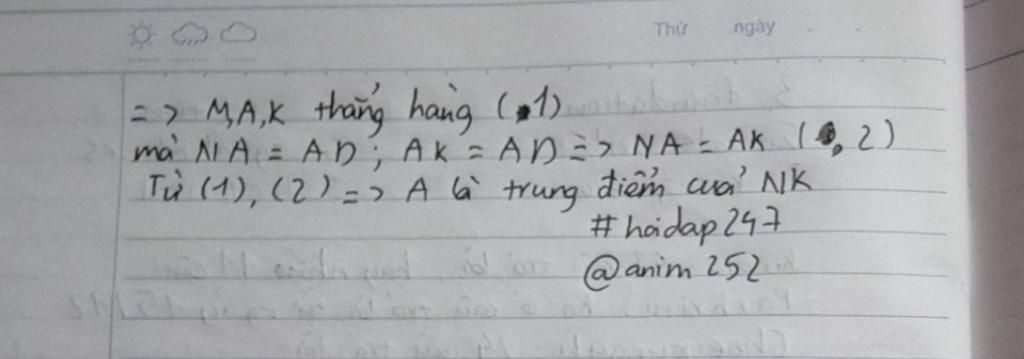 Thứ ngày
=> M,A,K thẳng hàng (1)
mà NA = AD ; AK = AD => NA = AK (2)
Từ (1), (2) => A là trung điểm của NK
#hoidap247
@anim252